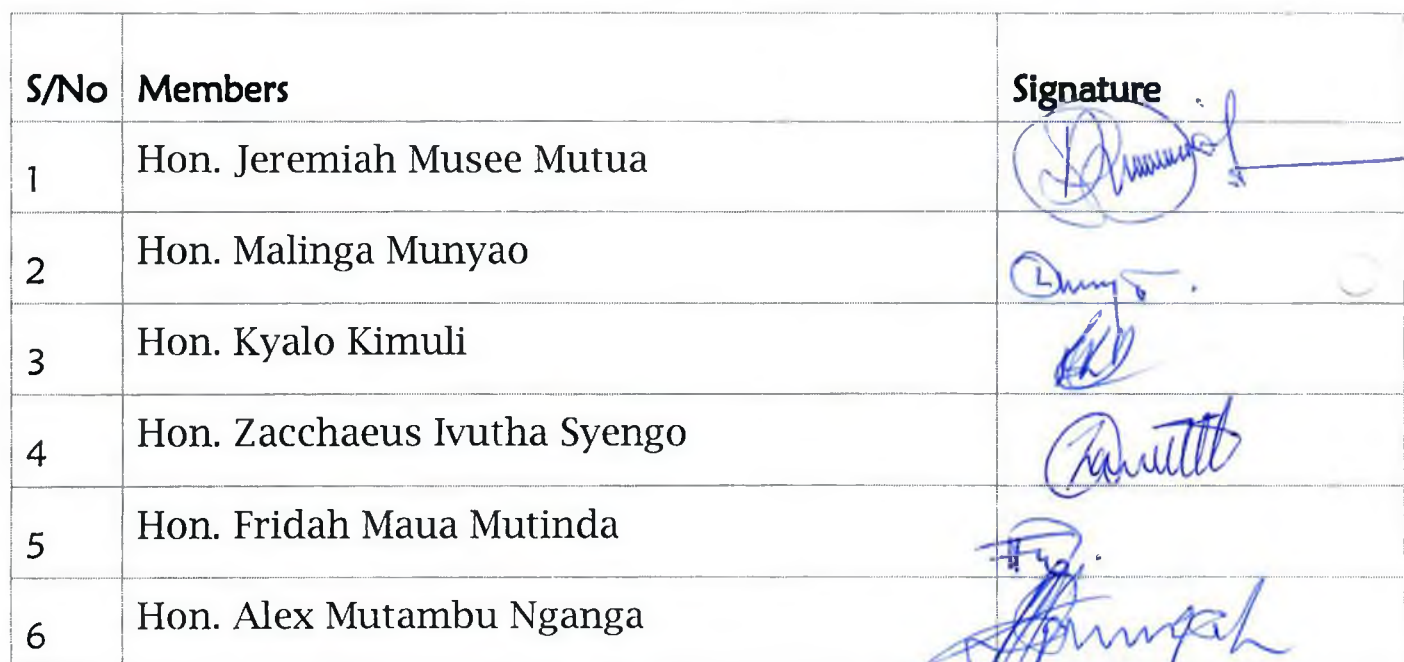 S/No Members Signature
1 Hon. Jeremiah Musee Mutua
2 Hon. Malinga Munyao
3 Hon. Kyalo Kimuli
4 Hon. Zacchaeus Ivutha Syengo
5 Hon. Fridah Maua Mutinda
6 Hon. Alex Mutambu Nganga